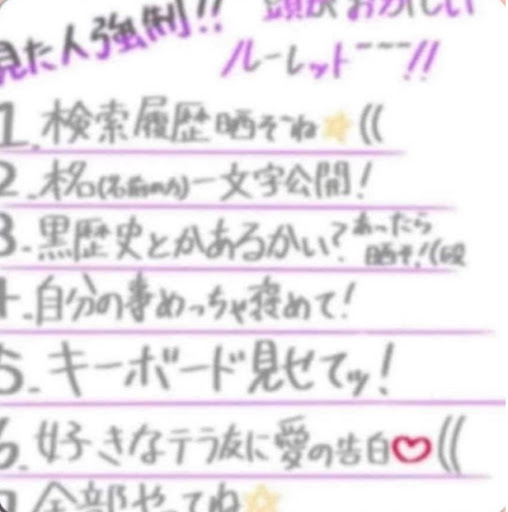 見た人強制!! 頭がおかしい
ルーレット~~~!!
1. 検索履歴晒そーね☆((
2. 本名(名前のみ)一文字公開!
3. 黒歴史とかあるかい?あったら
晒そ!((殴
4. 自分の事めっちゃ褒めて!
5. キーボード見せてッ!
6. 好きなテラ友に愛の告白♡((
7. 全部やってね☆